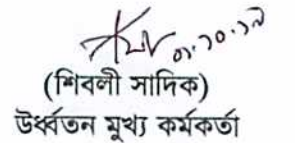 ০১.১০.১৯
(শিবলী সাদিক)
উর্ধ্বতন মুখ্য কর্মকর্তা